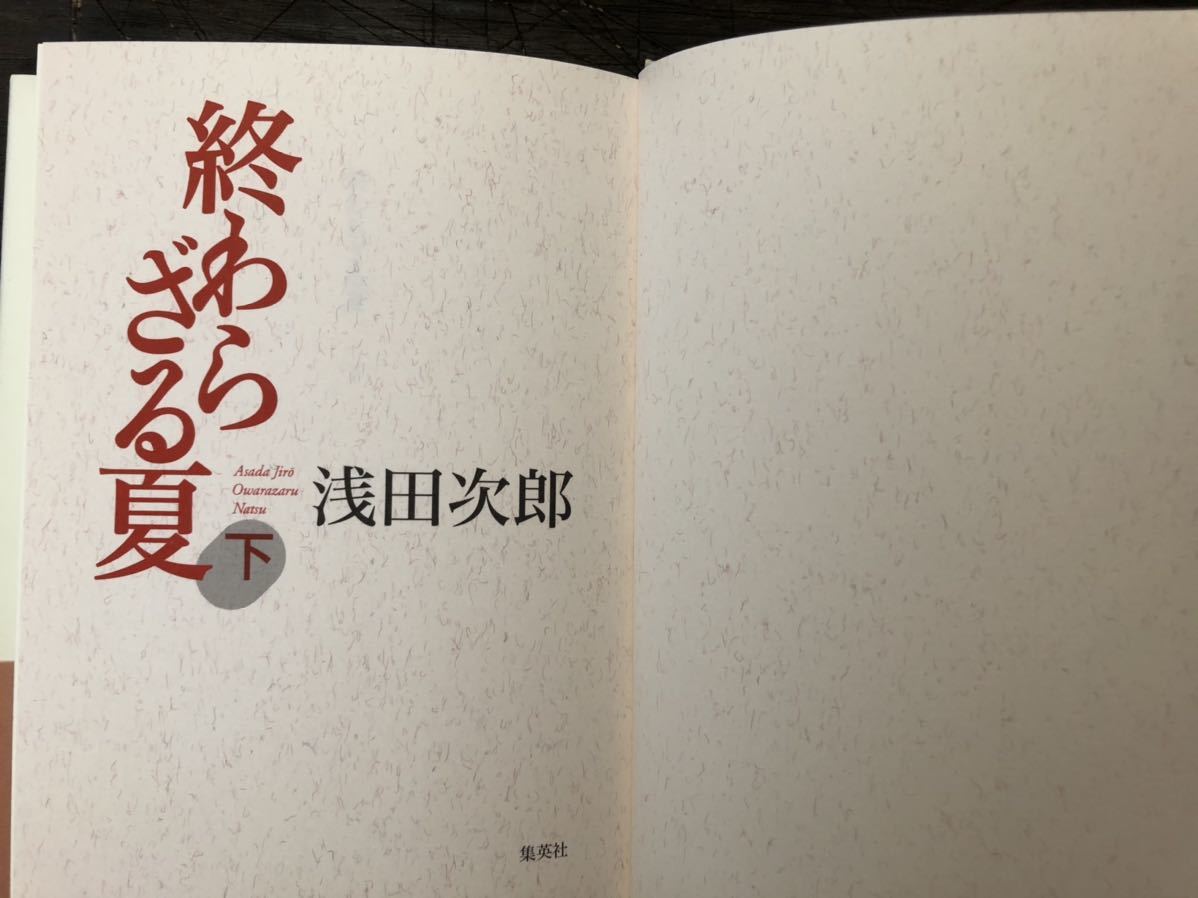 終わら
ざる夏
Asada Jirō
Owarazaru
Natsu
下
浅田次郎
集英社